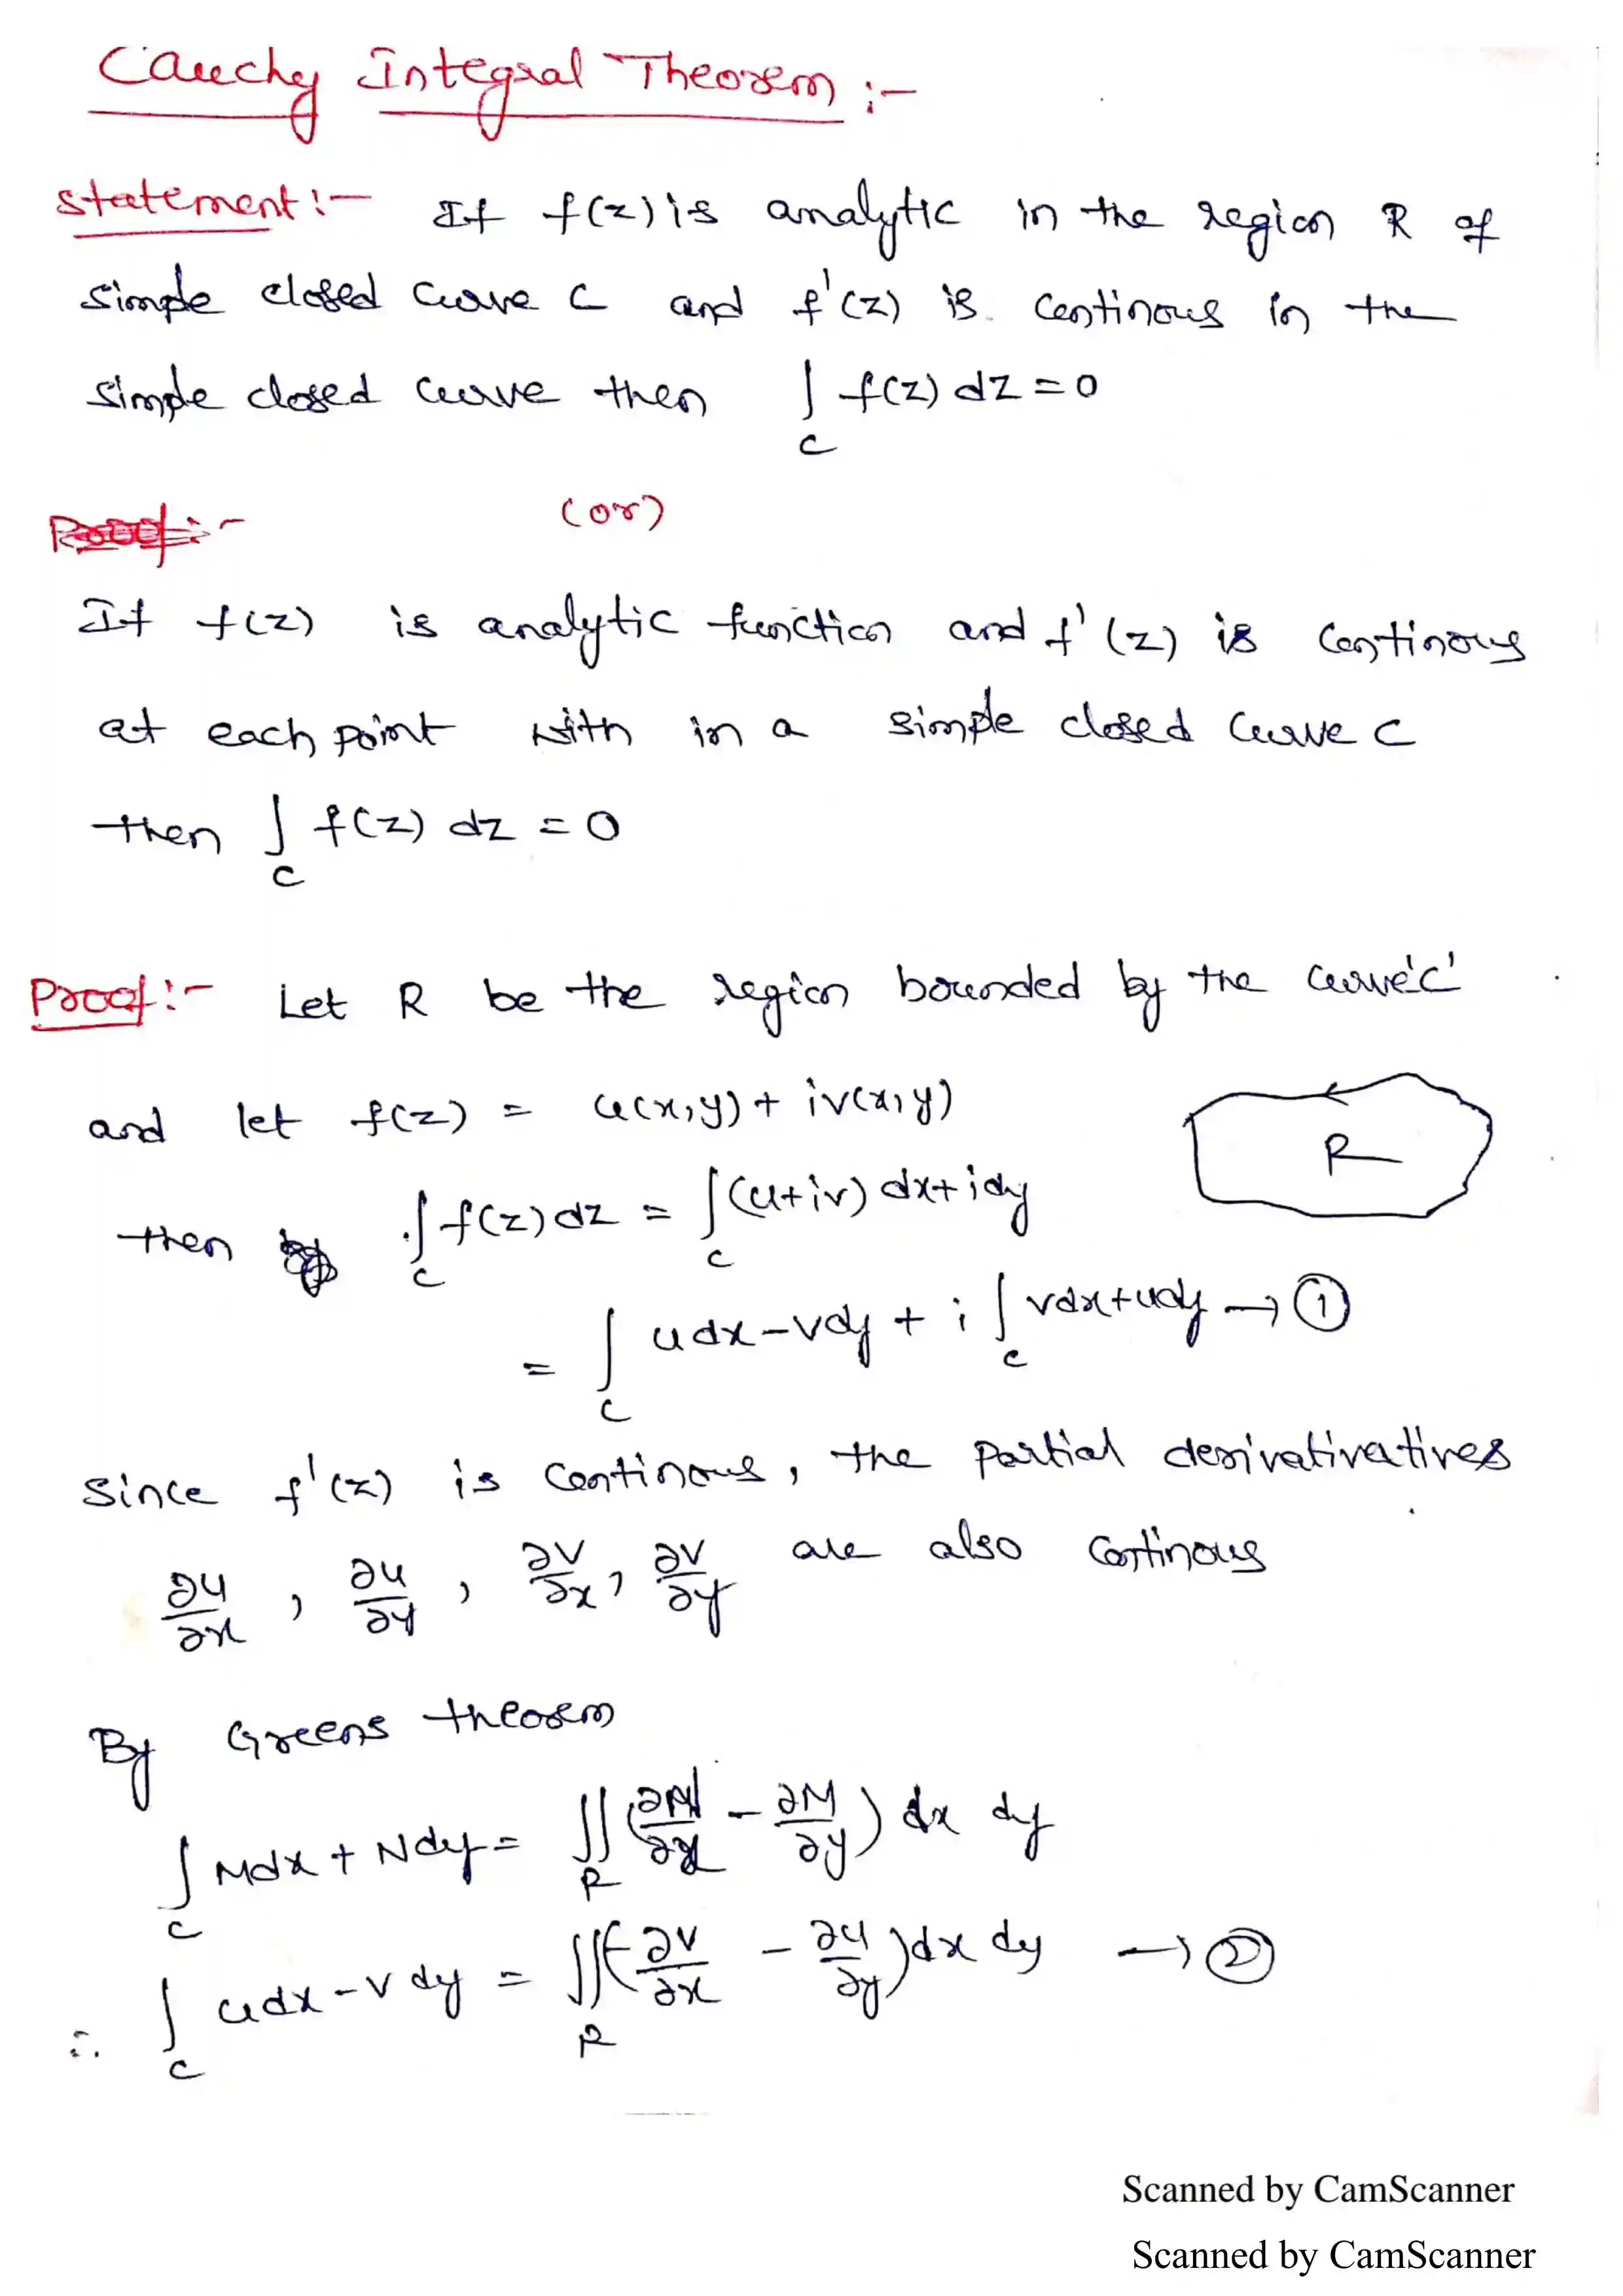 Cauchy Integral Theorem :-
Statement :- If f(z) is analytic in the region R of
simple closed curve C and f'(z) is continous in the
simple closed curve then ∫_C f(z) dz = 0
Proof :- (or)
If f(z) is analytic function and f'(z) is continous
at each point with in a simple closed curve C
then ∫_C f(z) dz = 0
Proof :- Let R be the region bounded by the curve 'C'
and let f(z) = u(x,y) + iv(x,y)
R
then ∫_C f(z) dz = ∫_C (u+iv) dx+idy
= ∫_C udx-vdy + i ∫_C vdx+udy → ①
since f'(z) is continous, the partial derivativatives
∂u/∂x , ∂u/∂y , ∂v/∂x , ∂v/∂y are also continous
By Greens theorem
∫_C Mdx + Ndy = ∬_R (∂N/∂x - ∂M/∂y) dx dy
∴ ∫_C udx - v dy = ∬_R (-∂v/∂x - ∂u/∂y) dx dy → ②
Scanned by CamScanner
Scanned by CamScanner